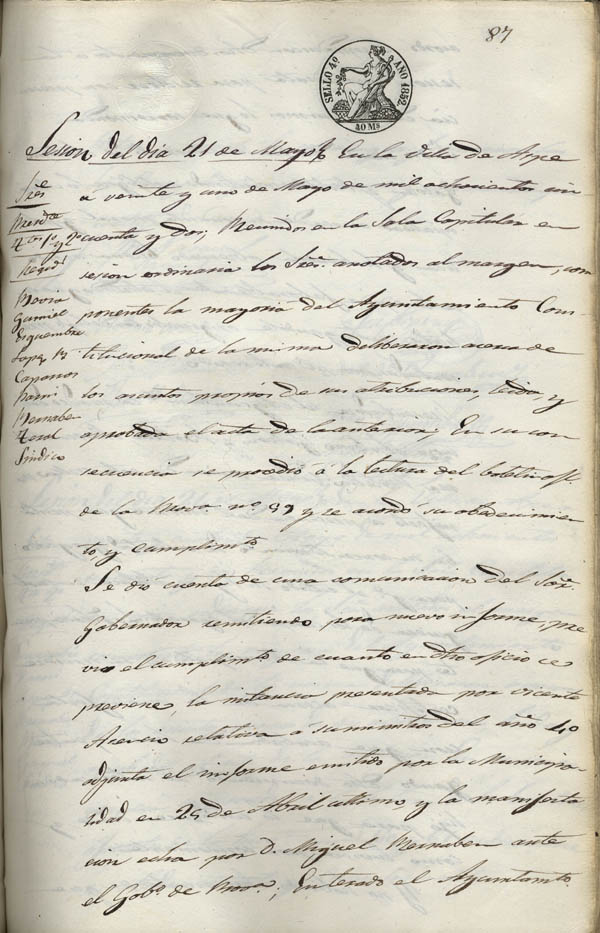 87
SELLO 4º AÑO 1852.
40 Ms
Sesion del dia 21 de Mayo En la villa de Aspe
á veinte y uno de Mayo de mil ochocientos cin
cuenta y dos; Reunidos en la Sala Capitular en
sesion ordinaria los Sres. anotados al margen, com
ponentes la mayoria del Ayuntamiento Cons-
titucional de la misma deliberaron acerca de
los asuntos propios de sus atribuciones, leida, y
aprobada el acta de la anterior; En su con
secuencia se procedió á la lectura del boletin ofl.
de la Prova nº 39 y se acordó su obedecimien
to, y cumplimto.
Se dió cuenta de una comunicacion del Sor.
Gobernador remitiendo para nuevo informe, pre
vio el cumplimto. de cuanto en dho oficio se
previene, la instancia presentada por Vicente
Asencio relativa á suministros del año 40
adjunta el informe emitido por la Municipa-
lidad en 25 de Abril ultimo y la manifesta
cion echa por D. Miguel Bernabeu ante
el Gobo. de Prova.; Enterado el Ayuntamto.
Sres
Presdte
Ttes 1º y 2º
Regids
Gumiel
Esquembre
Lopez
Caparros
Bernabeu
Sindico